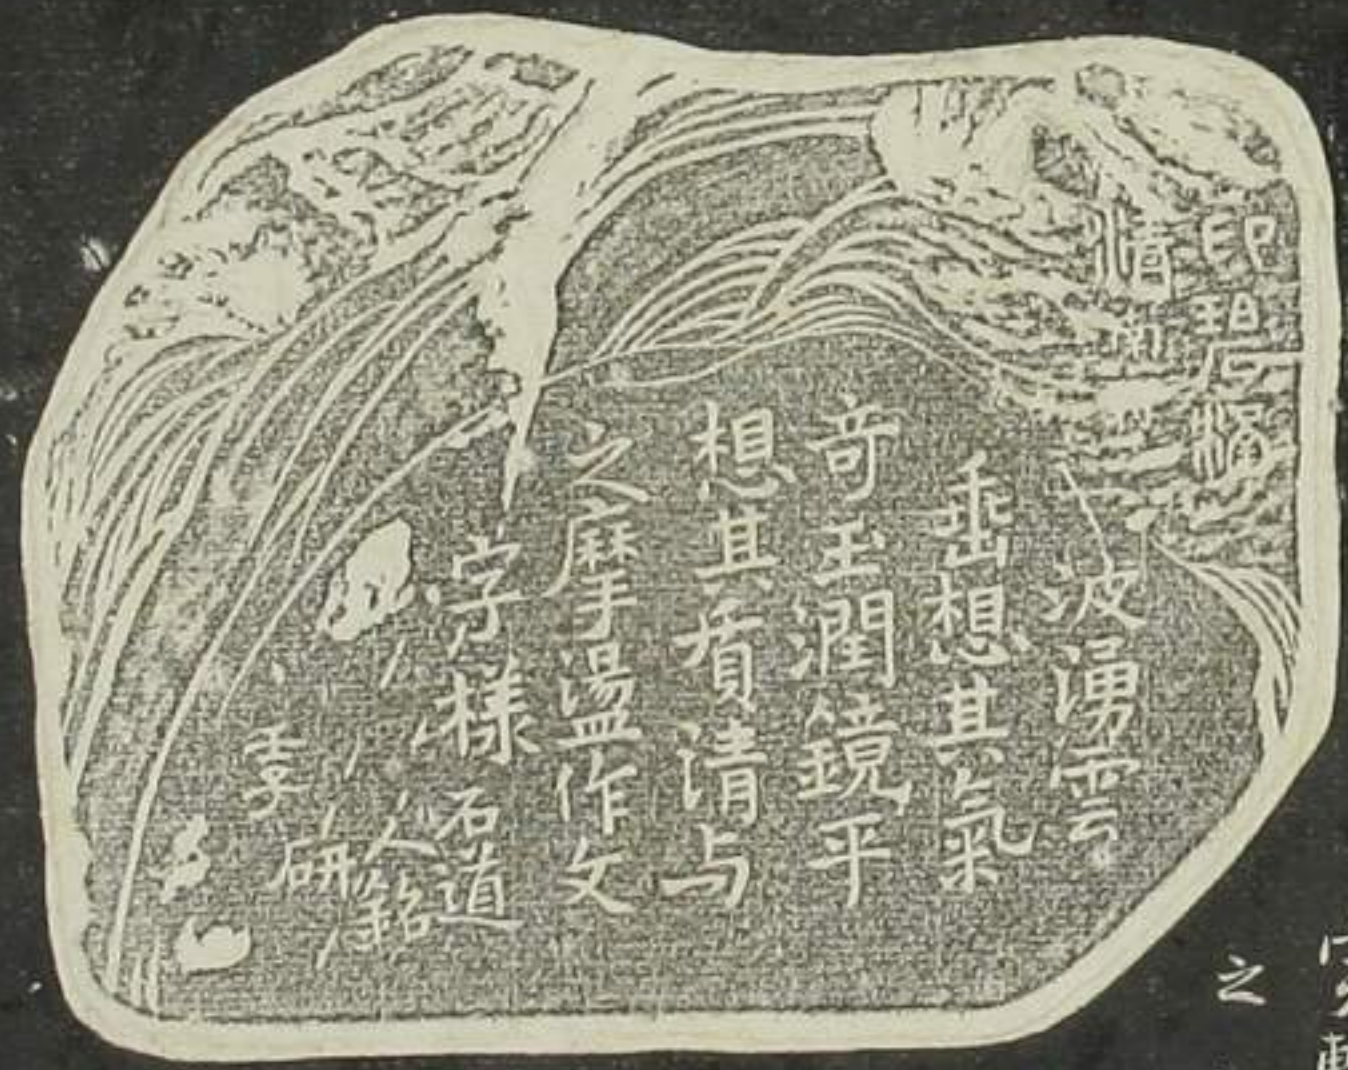 波湧雲
垂想其氣
奇玉潤鏡平
想其質清与
之摩盪作文
字樣 石道
人銘
研
之